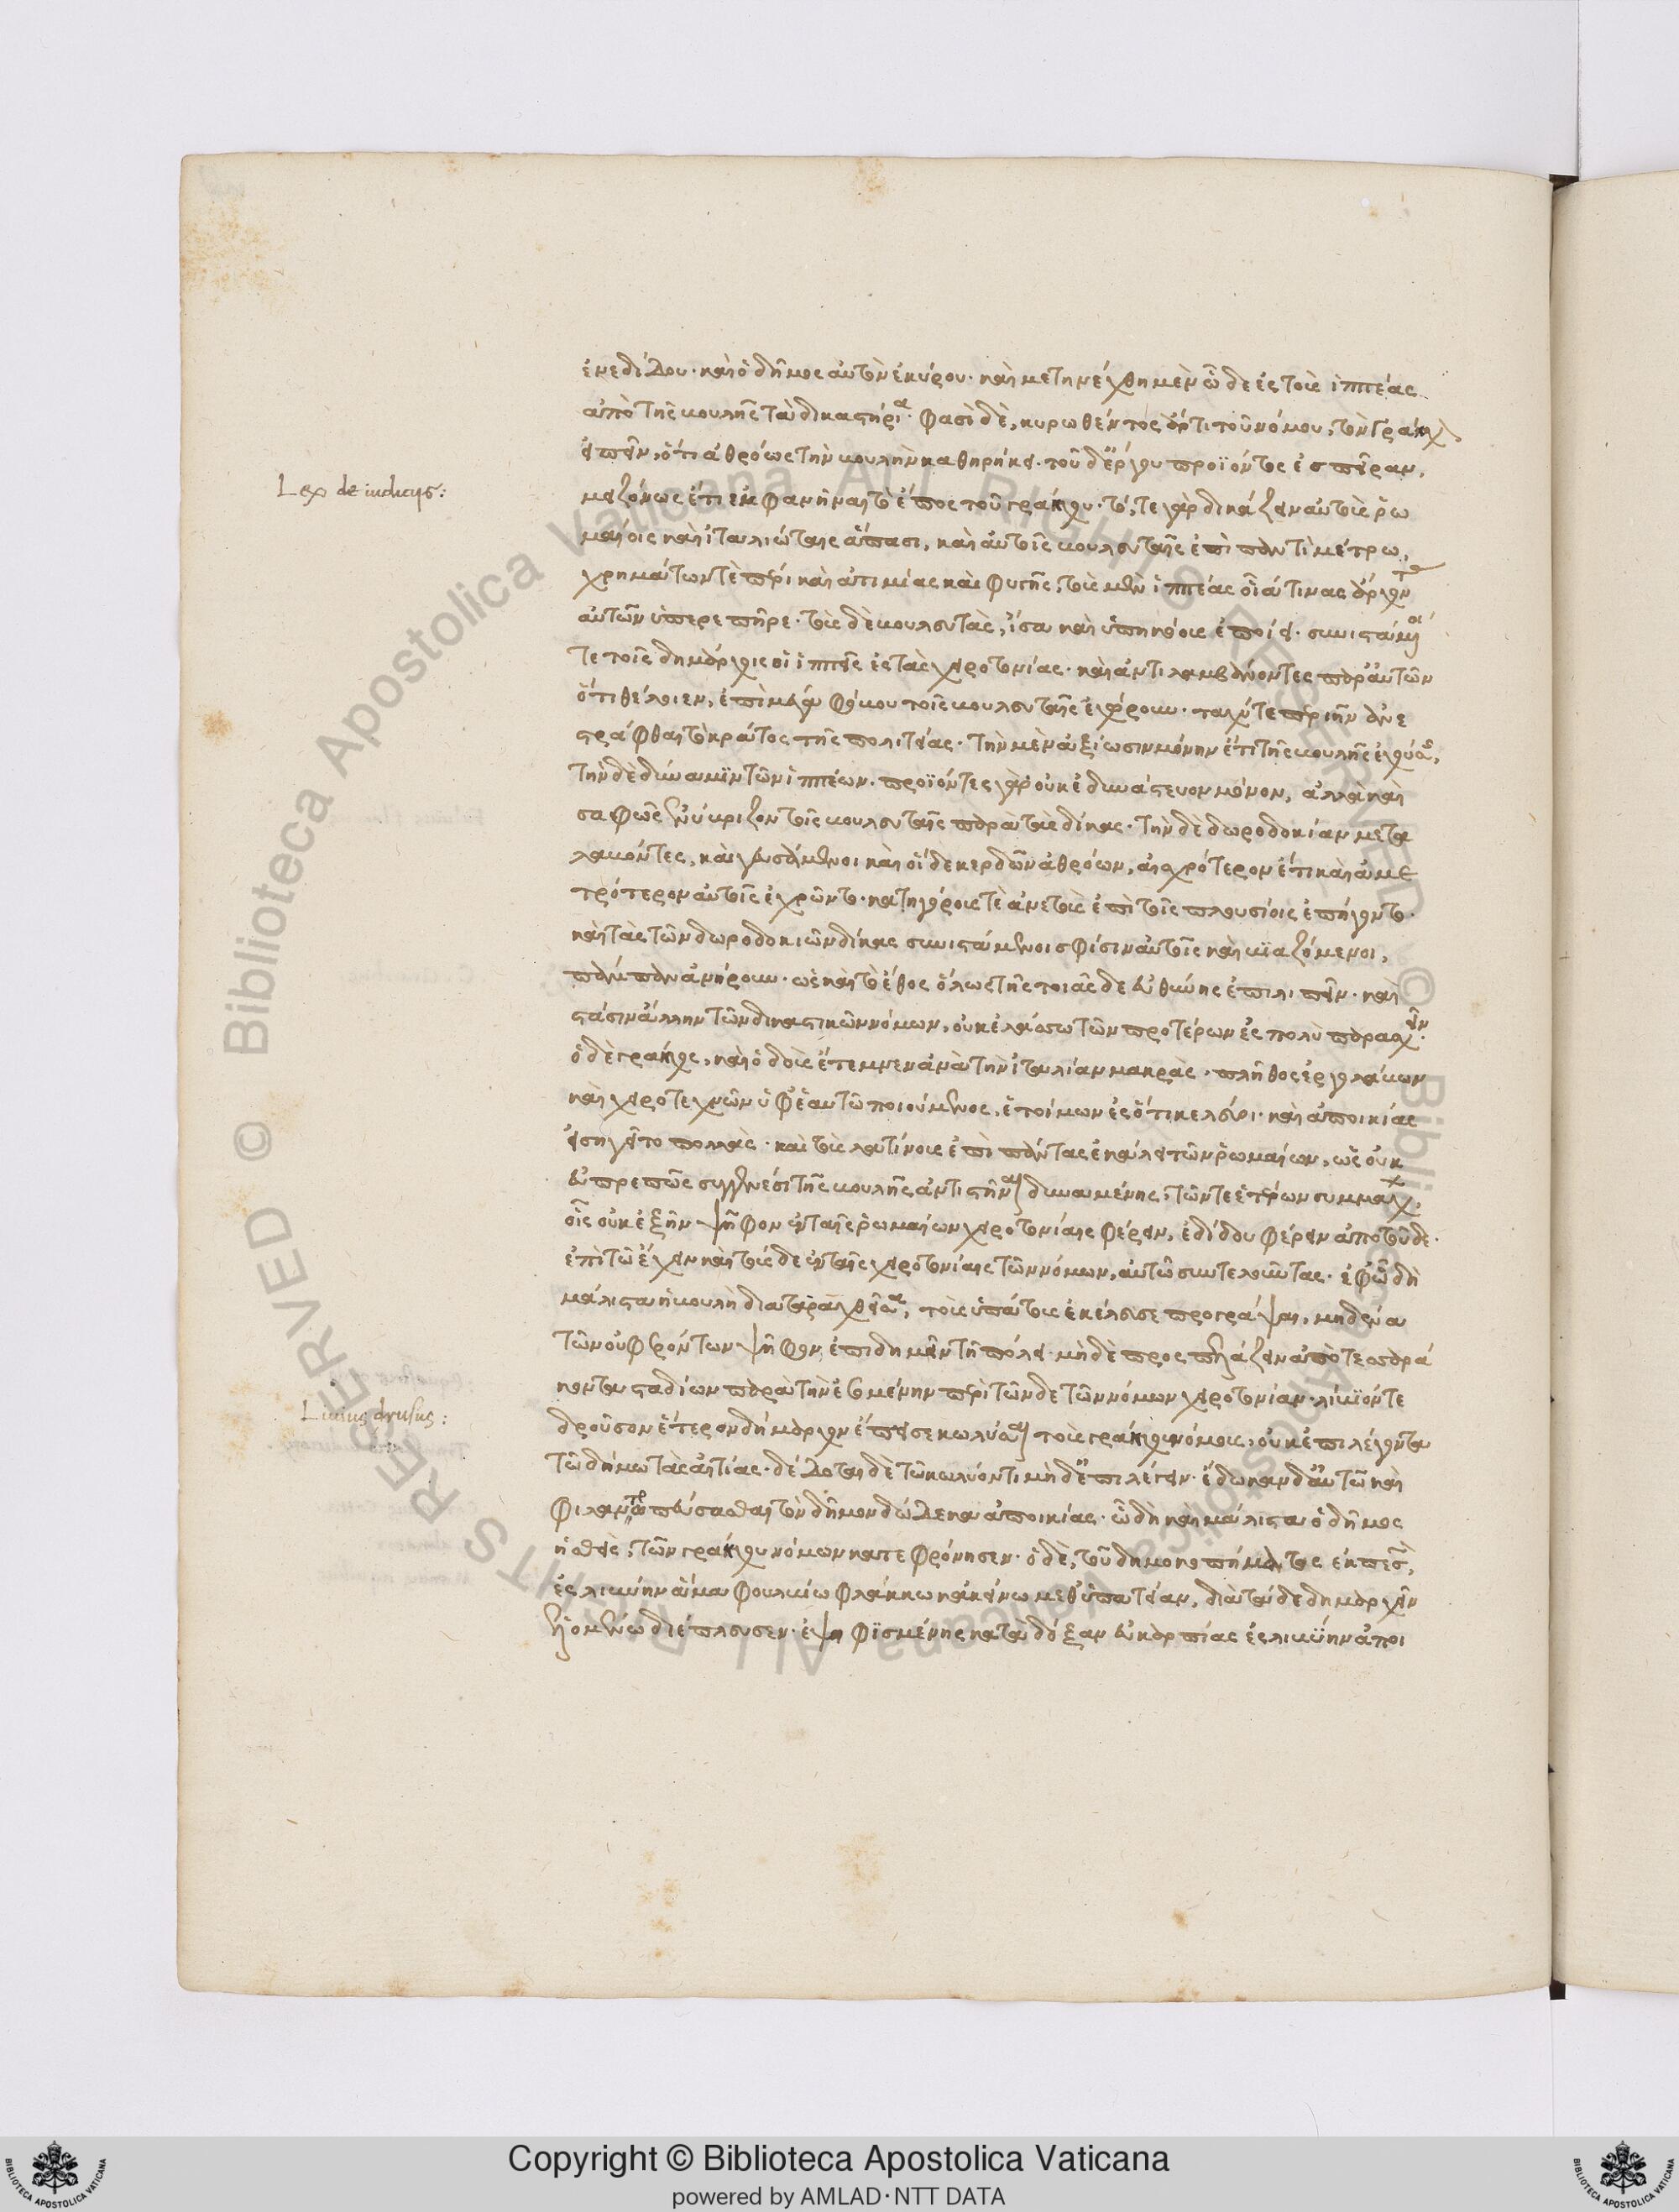 ἐνεδίδου· καὶ ὁ δῆμος αὐτὸν ἐκύρου· καὶ μετηνέχθη μὲν ὧδε ἐς τοὺς ἱππέας
ἀπὸ τῆς βουλῆς τὰ δικαστήρια· φασὶ δὲ, κυρωθέντος ἄρτι τοῦ νόμου, τὸν Γράκχ
εἰπεῖν, ὅτι ἀθρόως τὴν βουλὴν καθηρήκει· τοῦ δ' ἔργου προϊόντος ἐσ πεῖραν,
Lex de iudicijs:
μειζόνως ἔτι ἐκφανῆναι τὸ ἔπος τοῦ γράκχου· τό, τε γὰρ δικάζειν αὐτοὺς ῥω
μαίοις καὶ ἰταλιώταις ἅπασι, καὶ αὐτοῖς βουλευταῖς ἐπὶ παντὶ μέτρω,
χρημάτων τὲ πέρι καὶ ἀτιμίας καὶ φυγῆς, τοὺς μὲν ἱππέας οἷά τινας ἄρχοντ
αὐτῶν ὑπερεπῆρε· τοὺς δὲ βουλευτὰς, ἴσα καὶ ὑπηκόους ἐποίει· συνιστάμενοί
τε τοῖς δημάρχοις οἱ ἱππεῖς ἐς τὰς χειροτονίας· καὶ ἀντιλαμβάνοντες παρ' αὐτῶν
ὅτι θέλοιεν, ἐπὶ μέγα φόβου τοῖς βουλευταῖς ἐχώρουν· ταχύ τε περιῆν ἀνε
στράφθαι τὸ κράτος τῆς πολιτείας· τὴν μὲν ἀξίωσιν μόνην ἔτι τῆς βουλῆς ἐχούσ,
τὴν δὲ δύναμϊν τῶν ἱππέων· προϊόντες γὰρ οὐκ ἐδυνάστευον μόνον, ἀλλὰ καὶ
σαφῶς ἐνύβριζον τοῖς βουλευταῖς παρὰ τὰς δίκας· τὴν δὲ δωροδοκίαν μετα
λαβόντες, καὶ γευσάμενοι καὶ οἵδε κερδῶν ἀθρόων, αἰσχρότερον ἔτι καὶ ἀμε
τρότερον αὐτοῖς ἐχρῶντο· κατηγόρους τὲ ἀνετοὺς ἐπὶ τοῖς πλουσίοις ἐπήγοντο·
καὶ τὰς τῶν δωροδοκιῶν δίκας συνιστάμενοι σφίσιν αὐτοῖς καὶ βϊαζόμενοι,
πάμπαν ἀνήρουν· ὡς καὶ τὸ ἔθος ὅλως τῆς τοιᾶςδε εὐθύνης ἐπιλιπεῖν· καὶ
στάσιν ἄλλην τῶν δικαστικῶν νόμων, οὐκ ἐλάσσω τῶν προτέρων ἐς πολὺ παρασχεῖν·
ὁ δὲ γράκχος, καὶ ὁδοὺς ἔτεμνεν ἀνὰ τὴν ἰταλίαν μακρὰς· πλῆθος ἐργολάβων
καὶ χειροτεχνῶν ὑφ' ἑαυτῶ ποιούμενος, ἑτοίμων ἐς ὅτι κελεύοι· καὶ ἀποικίας
ἐσηγεῖτο πολλὰς· καὶ τοὺς λατίνους ἐπὶ πάντας ἐκάλει τῶν ῥωμαίων, ὡς οὐκ
εὐπρεπῶς συγγενέσι τῆς βουλῆς ἀντιστῆναι δυναμένης, τῶν τε ἑτέρων συμμάχ,
οἷς οὐκ ἐξῆν ψῆφον ἐν ταῖς ῥωμαίων χειροτονίαις φέρειν, ἐδίδου φέρειν ἀπὸ τοῦδε·
ἐπὶ τῶ ἔχειν καὶ τούςδε ἐν ταῖς χειροτονίαις τῶν νόμων, αὐτῶ συντελοῦντας· ἐφ' ὧ δὴ
μάλιστα ἡ βουλὴ διαταραχθεῖσα, τοὺς ὑπάτους ἐκέλευσε προγράψαι, μηδένα
τῶν οὐ φερόντων ψῆφον, ἐπιδημεῖν τῆ πόλει· μὴ δὲ προςπελάζειν ἀπὸ τεσσαρά
κοντα σταδίων παρὰ τὴν ἐσομένην περὶ τῶνδε τῶν νόμων χειροτονίαν· λίβϊόν τε
Liuius drusus:
δροῦσον ἕτερον δήμαρχον ἔπεισε κωλῦσαι τοὺς γράκχου νόμους, οὐκ ἐπιλέγοντα
τῶ δήμω τὰς αἰτίας· δέδοται δὲ τῶ κωλύοντι μὴ δ' ἐπιλέγειν· ἔδωκαν δ' αὐτῶ καὶ
φιλανθρωπεύσασθαι τὸν δῆμον δώδεκα ἀποικίας· ὧ δὴ καὶ μάλιστα ὁ δῆμος
ἡσθεὶς, τῶν γράκχου νόμων κατεφρόνησεν· ὁ δὲ, τοῦ δημοκοπήματος ἐκπεσ,
ἐς λιβύην ἅμα φουλβίω φλάκκω κἀκείνω μεθ' ὑπατείαν, διὰ τάδε δημαρχεῖν
ἑλομένω διέπλευσεν· ἐψηφϊσμένης κατὰ δόξαν εὐκαρπίας ἐς λιβύην ἀποι
Copyright © Biblioteca Apostolica Vaticana
powered by AMLAD·NTT DATA